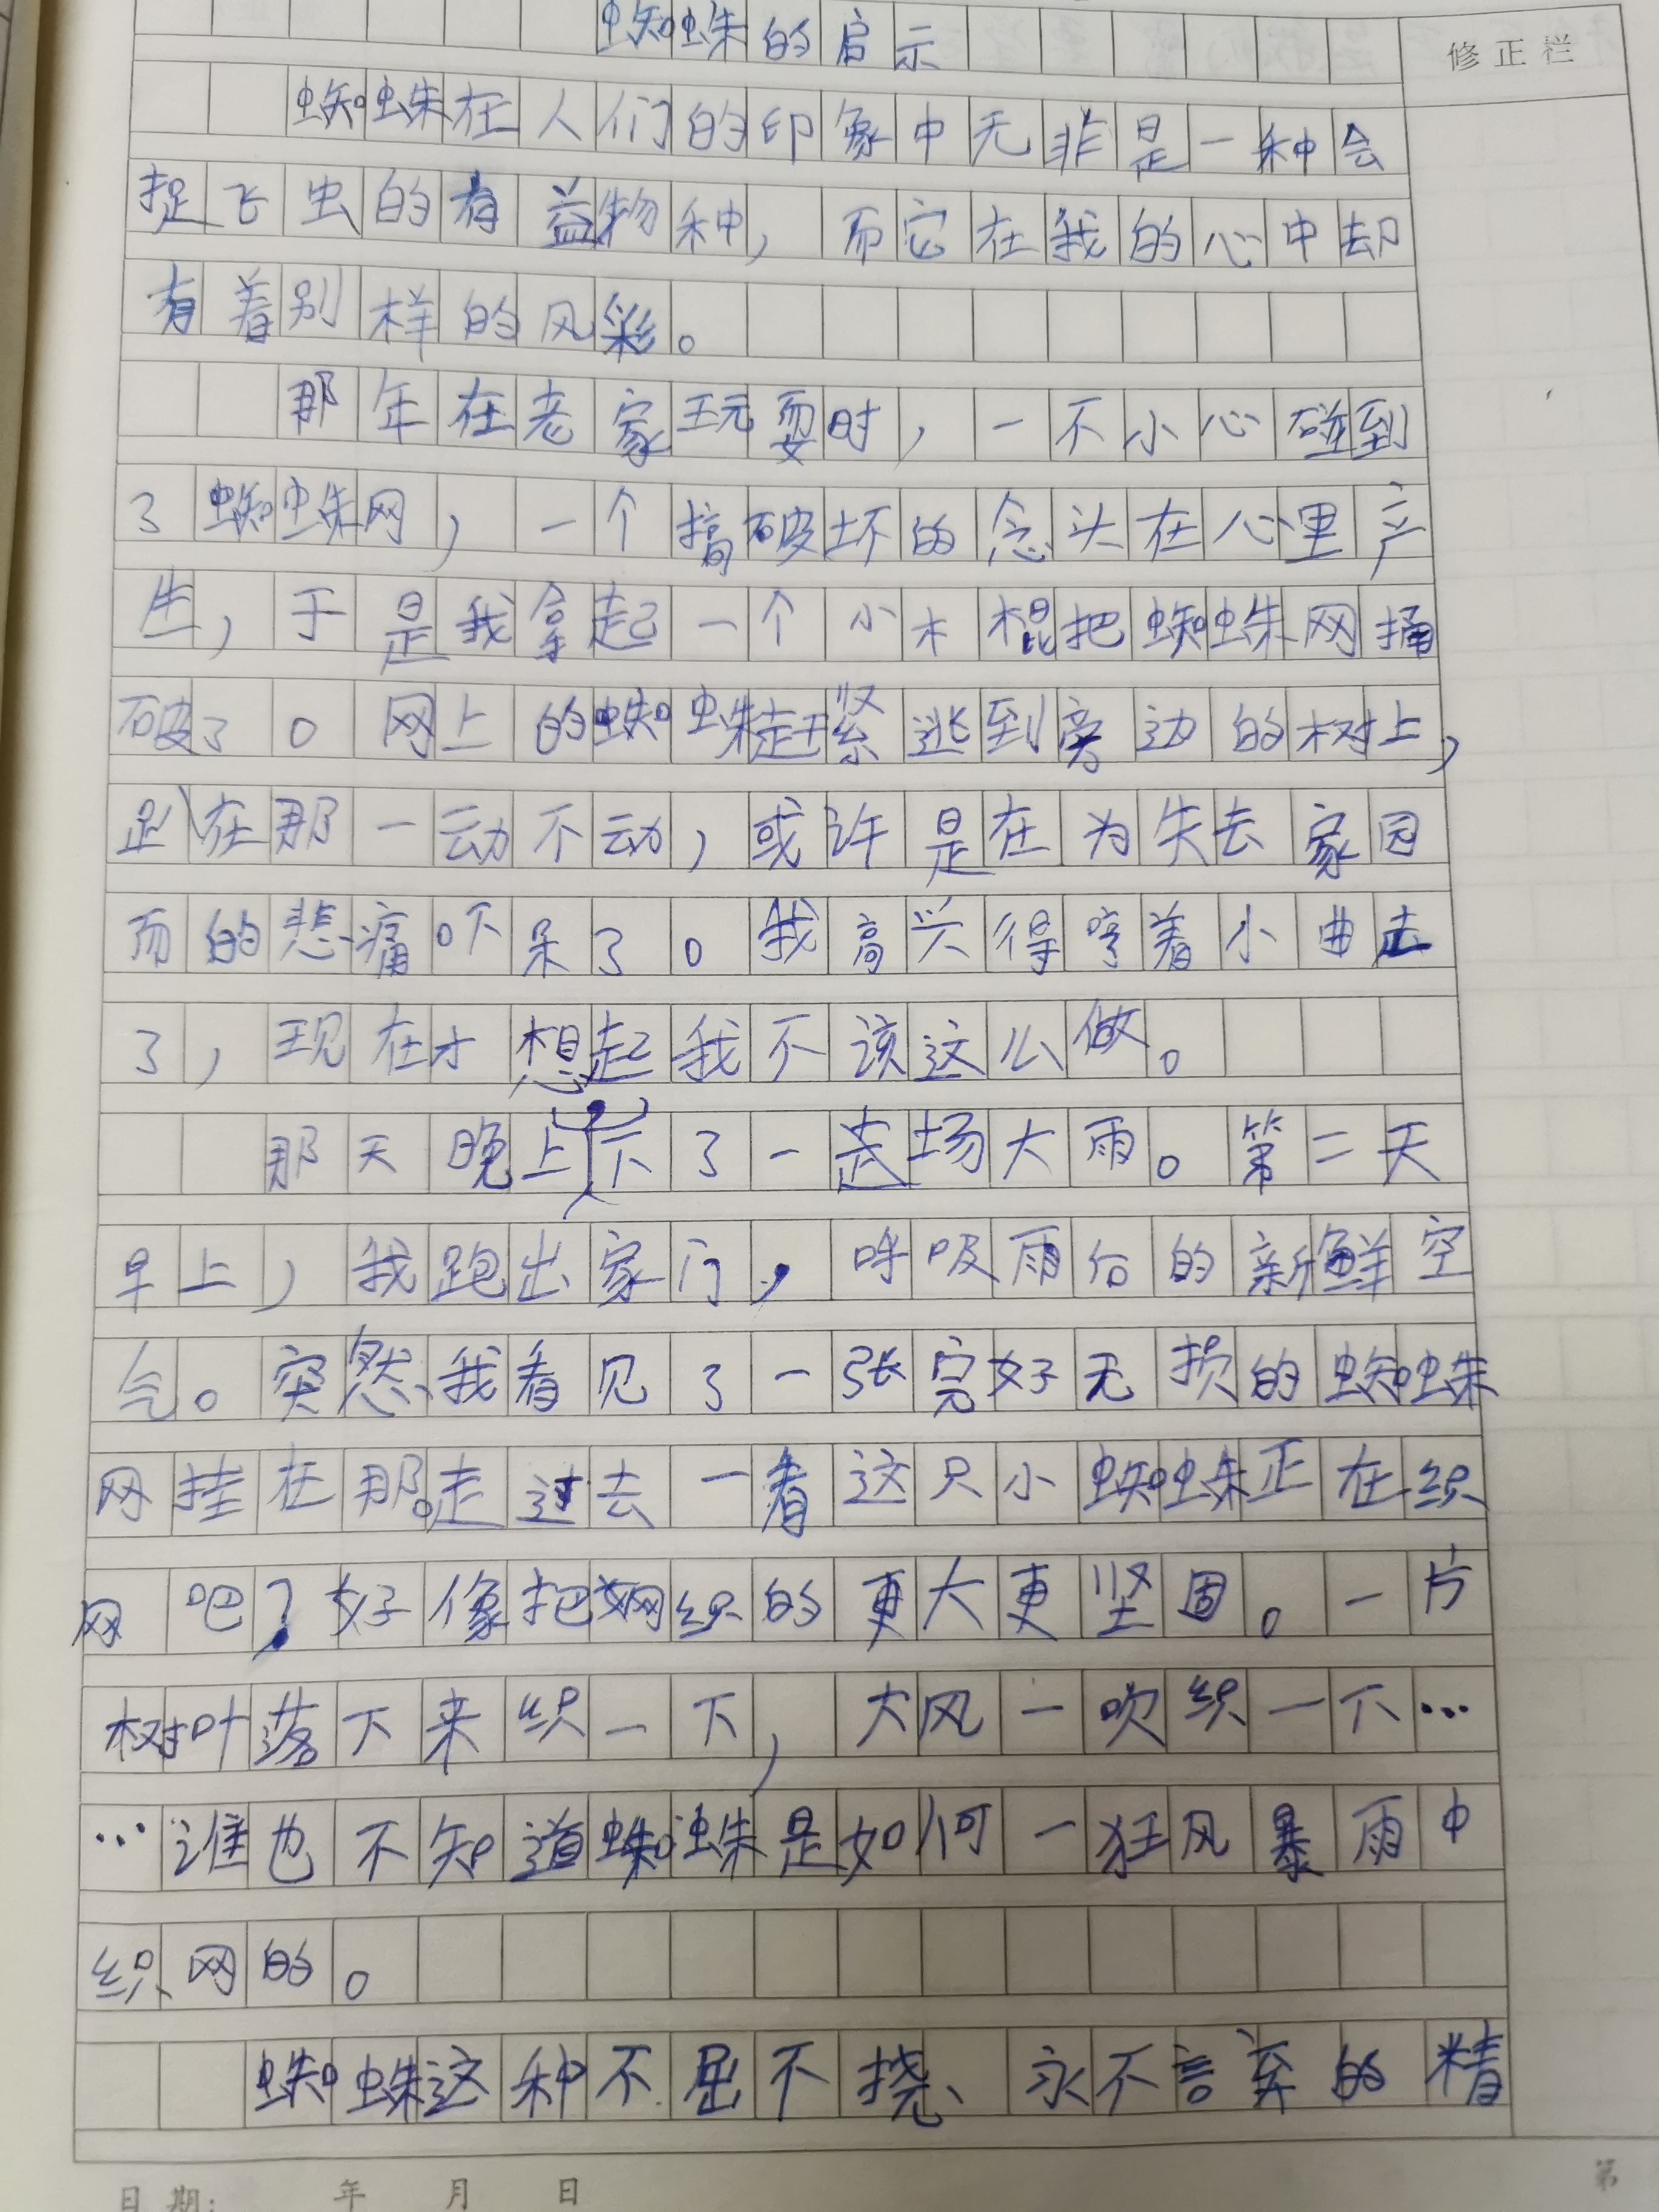 蜘蛛的启示
修正栏
蜘蛛在人们的印象中无非是一种会
捉飞虫的有益物种，而它在我的心中却
有着别样的风彩。
那年在老家玩耍时，一不小心碰到
了蜘蛛网，一个搞破坏的念头在心里产
生，于是我拿起一个小木棍把蜘蛛网捅
破了。网上的蜘蛛赶紧逃到旁边的树上，
趴在那一动不动，或许是在为失去家园
而的悲痛吓呆了。我高兴得哼着小曲走
了，现在才想起我不该这么做。
那天晚上下了一场大雨。第二天
早上，我跑出家门，呼吸雨后的新鲜空
气。突然、我看见了一张完好无损的蜘蛛
网挂在那。走过去一看这只小蜘蛛正在织
网吧？好像把网织的更大更坚固。一片
树叶落下来织一下，大风一吹织一下…
…谁也不知道蜘蛛是如何一狂风暴雨中
织网的。
蜘蛛这种不屈不挠、永不言弃的精
日期：　年　月　日
第